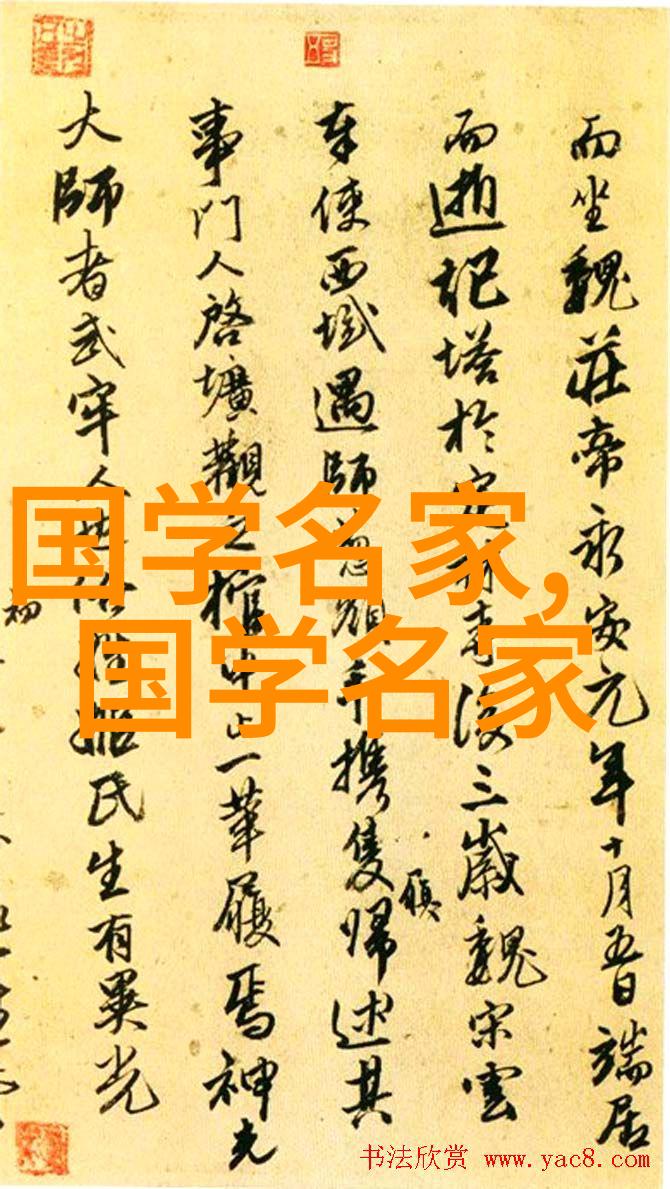 而坐魏莊帝永安元年十月五日端居
而逝記塔於後三歲魏宋雲
奉使西域遇師手攜隻歸述其
履
事門人啓壙觀之棺中止一革履焉神光
大師者武牢人姬氏生有異光
初
国学名家,
国学名家
书法欣赏 www.yac8.com